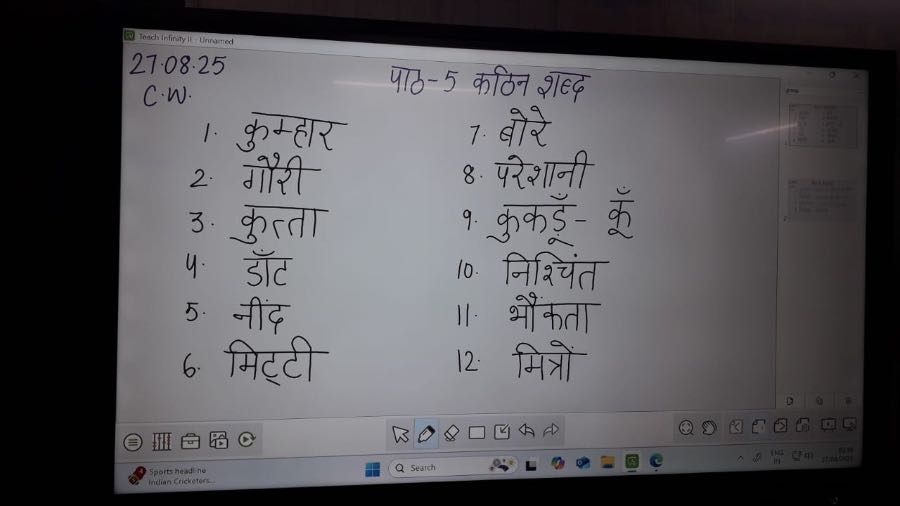 Teach Infinity II - Unnamed
27.08.25
C.W.
पाठ-5 कठिन शब्द
1. कुम्हार
2. गौरी
3. कुत्ता
4. डाँट
5. नींद
6. मिट्टी
7. बोरे
8. परेशानी
9. कुकड़ूँ - कूँ
10. निश्चिंत
11. भौंकता
12. मित्रों
Sports headline
Indian Cricketers...
Search
ENG
IN